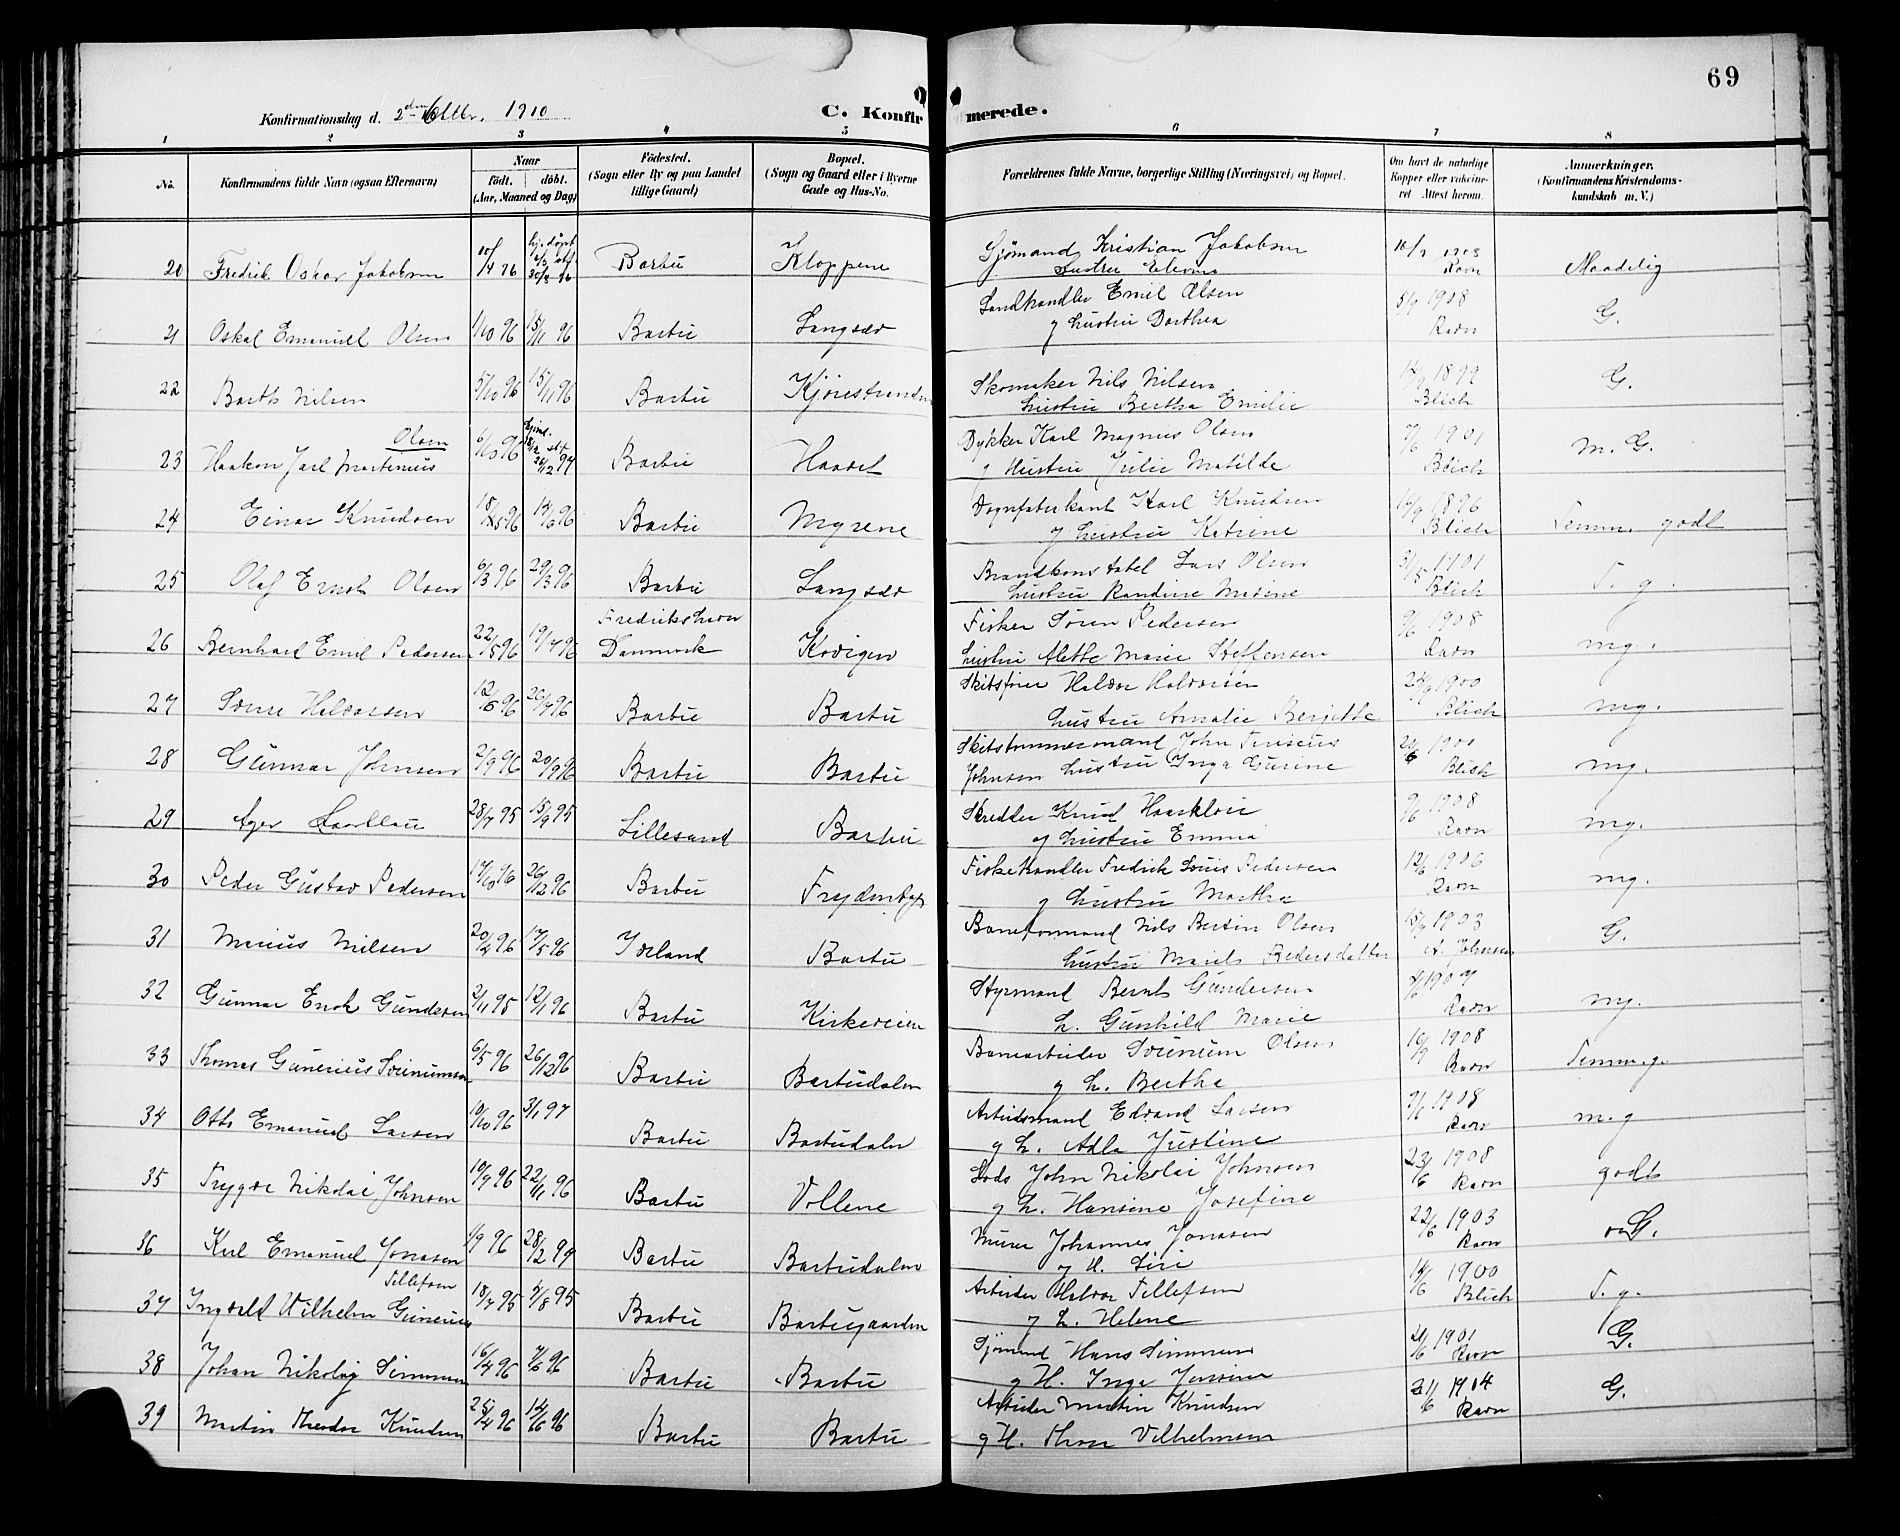 69
Konfirmationsdag d. 2den Oktbr. 1910 C. Konfirmerede.
1 2 3 4 5 6 7 8
No. Konfirmandens fulde Navn (ogsaa Efternavn) Naar födt. döbt. (Aar, Maaned og Dag) Födested. (Sogn eller By og paa Landet tillige Gaard) Bopæl. (Sogn og Gaard eller i Byerne Gade og Hus-No. Forældrenes fulde Navne, borgerlige Stilling (Næringsvei) og Bopæl. Om havt de naturlige Kopper eller vakcineret Attest herom. Anmerkninger. (Konfirmandens Kristendomskundskab m. V.)
20 Fredrik Oskar Jakobsen 10/4 96 Barbu Kloppene Sjømand Kristian Jakobsen 1908 Ravn Maadelig
21 Oskal Emanuel Olsen 1/10 96 15/11 96 Barbu Langsæv Landhandler Emil Olsen
g hustru Dorthea 5/9 1908 Ravn G.
22 Barth Nilsen 5/10 96 15/11 96 Barbu Skomaker Nils Nilsen
hustru Bertha Emilie 1899 Blich G.
23 Haakon Jarl Martinius Olsen 6/10 96 Barbu Haaset Dykker Karl Magnus Olsen
g Hustru Julie Matilde 7/6 1901 Blich m. G.
24 Einar Knudsen 14/6 96 Barbu Myrene Karl Knudsen
g hustru Katrine 14/9 1896 Blich Temm. godt
25 Olaf Ernst Olsen 6/3 96 29/3 96 Barbu Langsæv Brandkonstabel Lars Olsen
hustru Randine Marine 31/5 1901 Blich T. g.
26 Bernhard Emil Pedersen 22/5 96 19/7 96 Fredrikshavn Danmark Kovigen Fisker Sören Pedersen
hustru Alette Marie Steffensen 9/6 1908 Ravn mg.
27 Halvorsen 12/5 96 26/7 96 Barbu Barbu Skibsfører Halvor Halvorsen
hustru Amalie Bergitte 1900 Blich mg.
28 Gunnar Johnsen 2/9 96 20/9 96 Barbu Barbu Skibstømmermand John
Johnsen hustru Inga Gurine 1900 Blich mg.
29 28/7 95 15/9 95 Lillesand Barbu Skredder Knud
og hustru Emma 9/6 1908 Ravn mg.
30 Peder Gustav Pedersen 17/10 96 26/12 96 Barbu Fiskehandler Fredrik Louis Pedersen
g hustru Martha 12/6 1906 Ravn mg.
31 Marius Nilsen 20/4 96 17/5 96 Barbu Baneformand Nils Bertin Olsen
hustru Pedersdatter 15/9 1903 A. Johnsen G.
32 Gunnar Enok Gundersen 2/11 95 12/1 96 Barbu Kirkeveien Styrmand Bernt Gundersen
h. Gunhild Marie 1907 Ravn mg.
33 Thomas Gunerius Sørensen 6/5 96 26/12 96 Barbu Barbudalen Banearbeider Olsen
g h. Bertha 16/9 1908 Ravn Temm. g.
34 Otto Emanuel Larsen 10/10 96 3/1 97 Barbu Barbudalen Arbeidsmand Edvard Larsen
g h. Adla Justine 9/6 1908 Ravn m. g
35 Trygve Nikolai Johnsen 10/9 96 22/11 96 Barbu Vollene Lods John Nikolai Johnsen
g h. Hansine Josefine 23/6 1908 Ravn godt
36 Karl Emanuel Jonassen 1/9 96 28/2 97 Barbu Barbudalen Murer Johannes Jonassen
g H. Siri 22/6 1903 Ravn G.
37 Ingvald Wilhelm Gunerius Tellefsen 18/7 95 4/8 95 Barbu Barbugaarden Arbeider Halvor Tellefsen
g h. Helene 14/6 1900 Blich T. g.
38 Johan Nikolay Simonsen 16/4 96 7/6 96 Barbu Barbu Sjømand Hans Simonsen
g H. Inga 21/6 1901 Ravn G.
39 Martin Theodor Knudsen 25/4 96 14/6 96 Barbu Barbu Arbeider Martin Knudsen
g H. Vilhelmsen 21/6 1904 Ravn G.